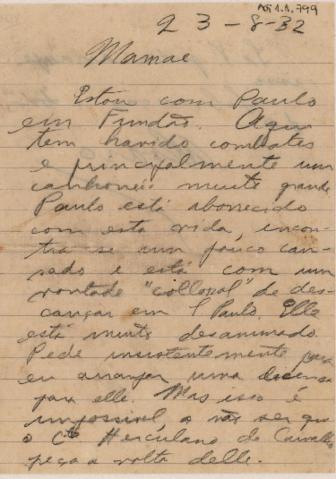 AP 1.1.799
23-8-32
Mamãe
Estou com Paulo
em Fundão. Aqui
tem havido combates
e principalmente um
canhoneio muito grande
Paulo está aborrecido
com esta vida, encon-
tra se um pouco can-
sado e está com um
vontade "collossal" de des-
cançar em S Paulo. Elle
está muito desanimado.
Pede insistentemente para
eu arranjar uma licença
para elle. Mas isso é
impossivel a não ser que
o Cte Herculano de Carvalho
peça a volta delle.